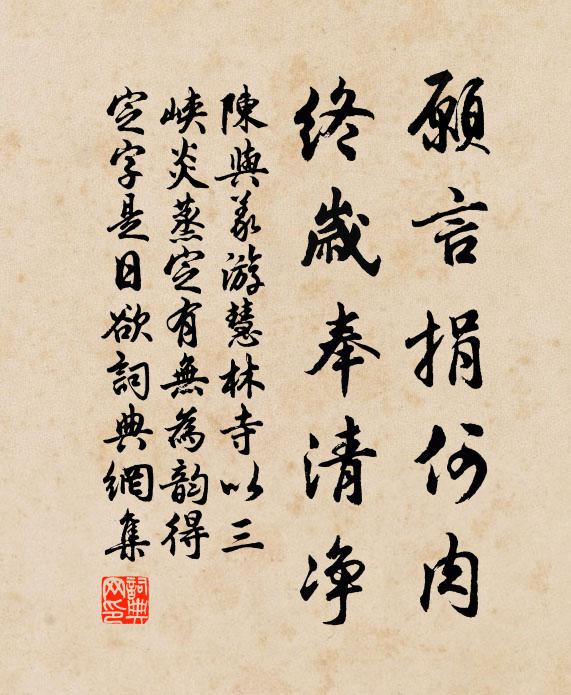 願言捐何肉
終歲奉清淨
陳與義游慧林寺以三
峽炎蒸定有無為韵得
定字是日欲詞典網集
詞典网印